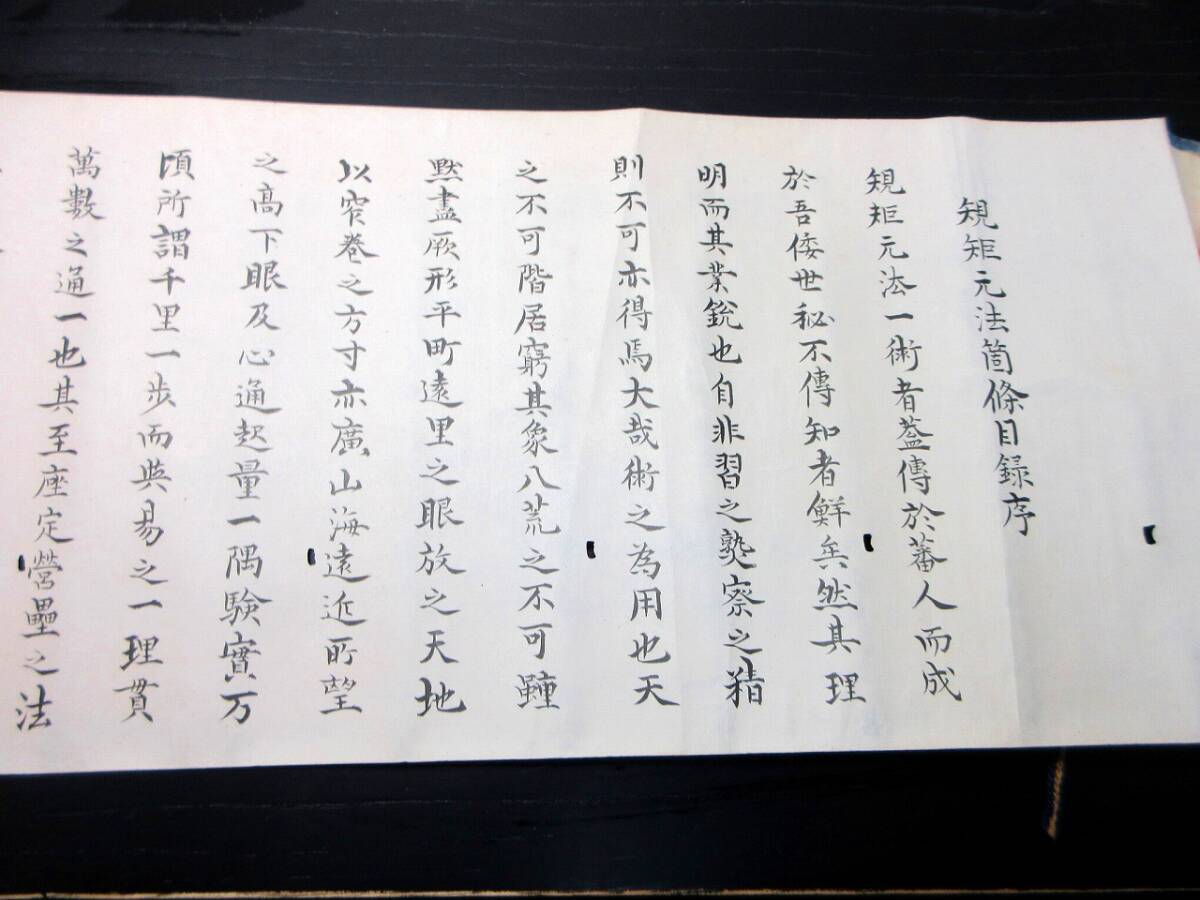 規矩元法箇條目録序
規矩元法一術者蓋傳於蕃人而成
於吾倭世秘不傳知者鮮矣然其理
明而其業銳也自非習之熟察之精
則不可亦得焉大哉術之為用也天
之不可階居窮其象八荒之不可
默盡厥形平町遠里之眼放之天地
以窄巻之方寸亦廣山海遠近所望
之高下眼及心通起量一隅験實万
頃所謂千里一歩而與易之一理貫
萬數之通一也其至座定營壘之法